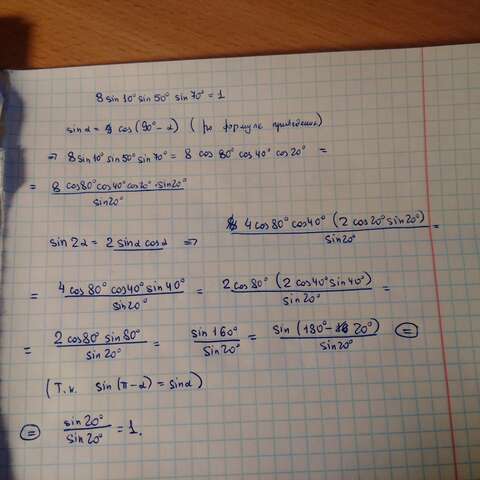 8 sin 10° sin 50° sin 70° = 1
sin α = cos (90° - α) (по формуле приведения)
⇒ 8 sin 10° sin 50° sin 70° = 8 cos 80° cos 40° cos 20° =
= 8 cos 80° cos 40° cos 20° · sin 20° / sin 20°
sin 2α = 2 sin α cos α ⇒ 4 cos 80° cos 40° (2 cos 20° sin 20°) / sin 20° =
= 4 cos 80° cos 40° sin 40° / sin 20° = 2 cos 80° (2 cos 40° sin 40°) / sin 20° =
= 2 cos 80° sin 80° / sin 20° = sin 160° / sin 20° = sin (180° - 20°) / sin 20° =
(Т.к. sin (π - α) = sin α)
= sin 20° / sin 20° = 1.